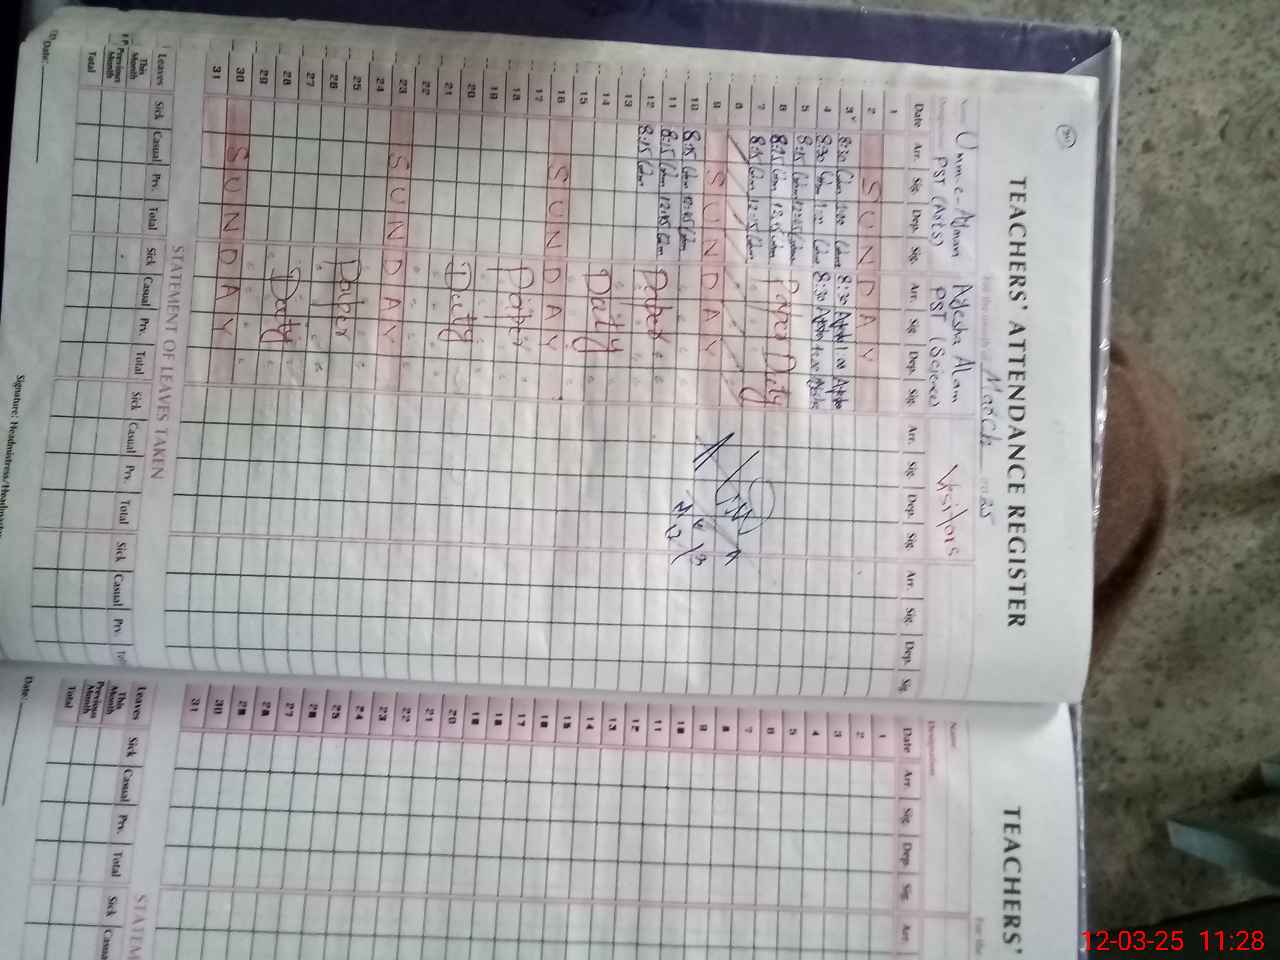 TEACHERS' ATTENDANCE REGISTER
For the month of March 2025
Name Umm-e-Ayman Ayesha Alam Visitors
Designation PST (Arts) PST (Science)
Date Arr. Sig. Dep. Sig. Arr. Sig. Dep. Sig. Arr. Sig. Dep. Sig. Arr. Sig. Dep. Sig.
1
2 SUNDAY
3 8:30 1:00 8:30 1:00
4 8:30 1:00 8:30 1:00
5 8:15 12:45
6 8:15 12:45 Paper Duty
7 8:15 12:45
8
9 SUNDAY
10 8:15 12:45
11 8:15 12:45
12 8:15 Paper
13
14 Duty
15
16 SUNDAY
17
18 Paper
19
20
21 Duty
22
23 SUNDAY
24
25
26 Paper
27
28 Duty
29
30 SUNDAY
31
STATEMENT OF LEAVES TAKEN
Leaves Sick Casual Prv. Total Sick Casual Prv. Total Sick Casual Prv. Total Sick Casual Prv.
This Month
Previous Month
Total
Date:
Signature: Headmistress/
TEACHERS'
For the
Name
Designation
Date Arr. Sig. Dep. Sig. Arr.
1
2
3
4
5
6
7
8
9
10
11
12
13
14
15
16
17
18
19
20
21
22
23
24
25
26
27
28
29
30
31
STATEM
Leaves Sick Casual Prv. Total Sick Casua
This Month
Previous Month
Total
Date:
12-03-25 11:28